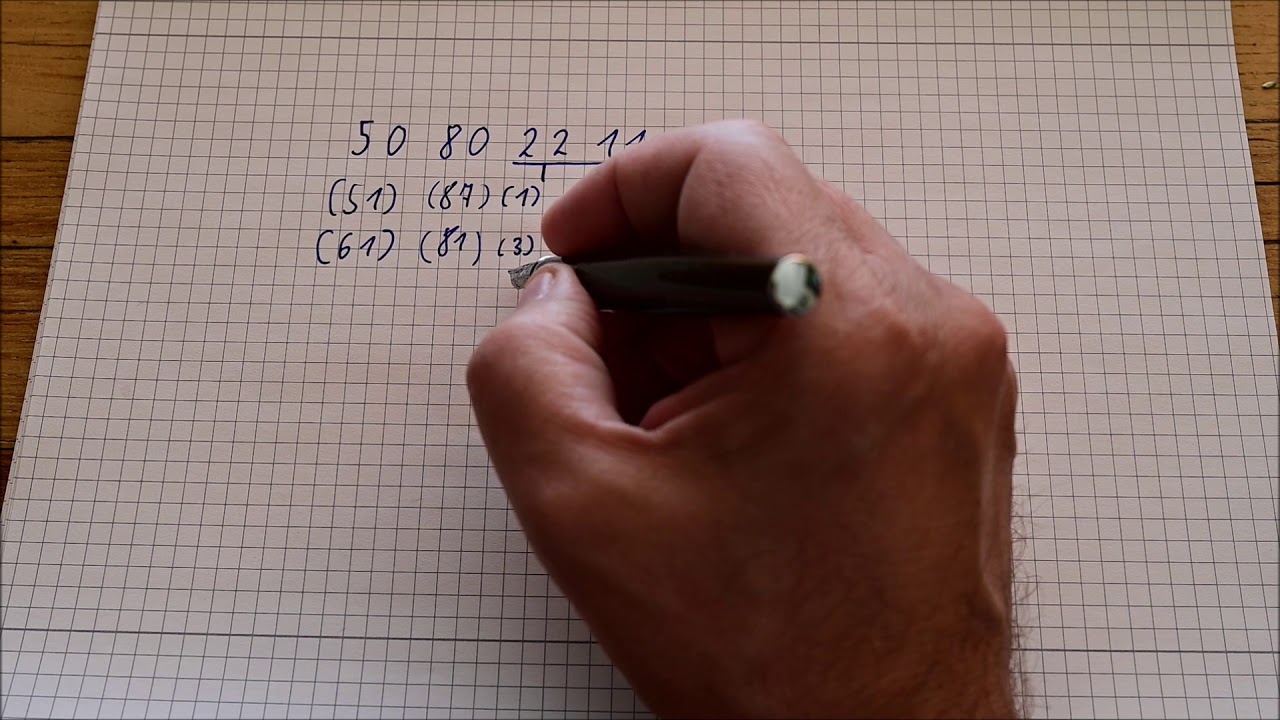 50 80 22 11
(51) (87) (1)
(61) (81) (3)